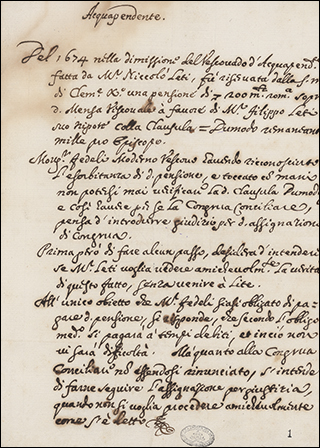 Acquapendente.
Nel 1674 nella dimissione del Vescovado d'Acquapend.
fatta da Mr. Niccolò Leti, fù riservata dalla S. m.
di Clem.e X.o una pensione di 200 m.ta rom.a sopra
d. Mensa Vescovale à favore di Mr. Filippo Leti
suo Nipote colla Clausula = Dumodo remaneant
mille pro Episcopo.
Mons.r Fedelij Moderno Vescovo havendo riconosciuta
l'esorbitanza di d. pensione, e toccato con mani
non potersi mai verificare la d. Clausula Dumodo
e così cause più se la Congrua Conciliare,
pensa d'introdurre giudizio per d. assignazione
di Congrua.
Prima però di fare alcun passo, desidera d'intendere
se Mr. Leti voglia vedere amichevolm.te la verità
di questo fatto, senza venire à Lite.
All'unico obietto che Mr. Fedeli siasi obligato di pa-
gare d. pensione, si risponde, che secondo l'obligo
med.o si pagarà à tempi debiti, et in ciò non
vi sarà difficoltà. Mà quanto alla Congrua
Conciliare non essendosi rinunciato, s'intende
di farne seguire l'assignazione per giustizia,
quando non si voglia procedere amichevolmente
come s'è detto.
1